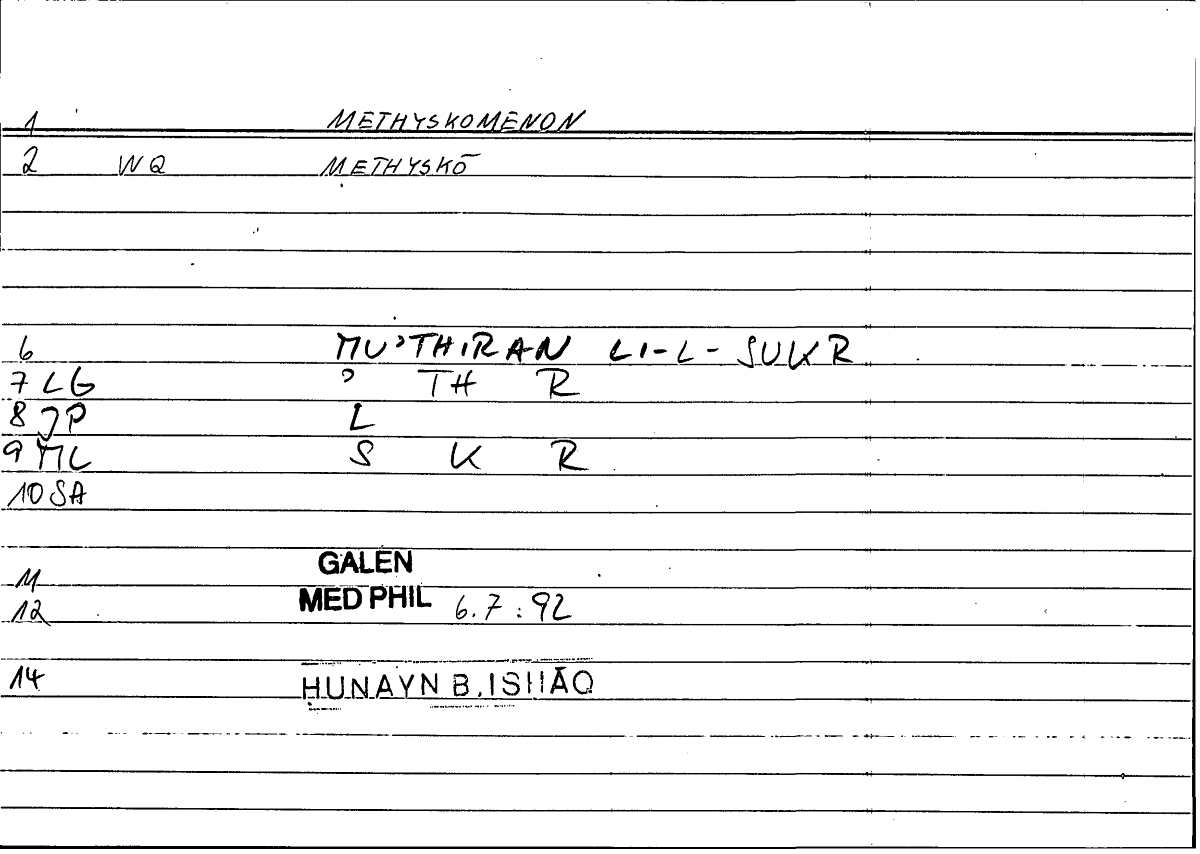 1 METHYSKOMENON
2 WQ METHYSKŌ
6 MU'THIRAN LI-L-SUKR
7 LG ' TH R
8 JP L
9 ML S K R
10 SA
11 GALEN
12 MED PHIL 6.7:92
14 ḤUNAYN B. ISḤĀQ